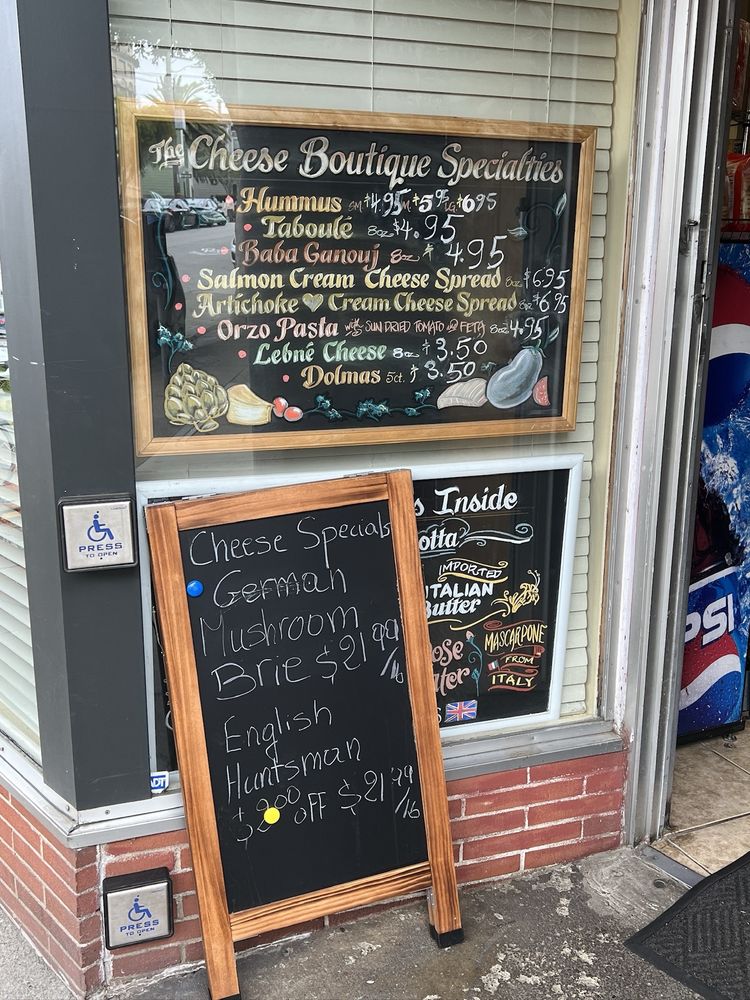 The Cheese Boutique Specialties
Hummus SM $4.95 M $5.95 LG $6.95
Taboulé 8oz $4.95
Baba Ganouj 8oz $4.95
Salmon Cream Cheese Spread 8oz $6.95
Artichoke Cream Cheese Spread 8oz $6.95
Orzo Pasta with SUN DRIED TOMATO & FETA 8oz 4.95
Lebné Cheese 8oz $3.50
Dolmas 5ct. $3.50
s Inside
otta
IMPORTED
ITALIAN
Butter
MASCARPONE
FROM
ITALY
Cheese Specials
German
Mushroom
Brie $21.99/lb
English
Huntsman
$2.00 OFF $21.99/lb
PRESS
TO OPEN
ADT
PRESS
TO OPEN
PSI